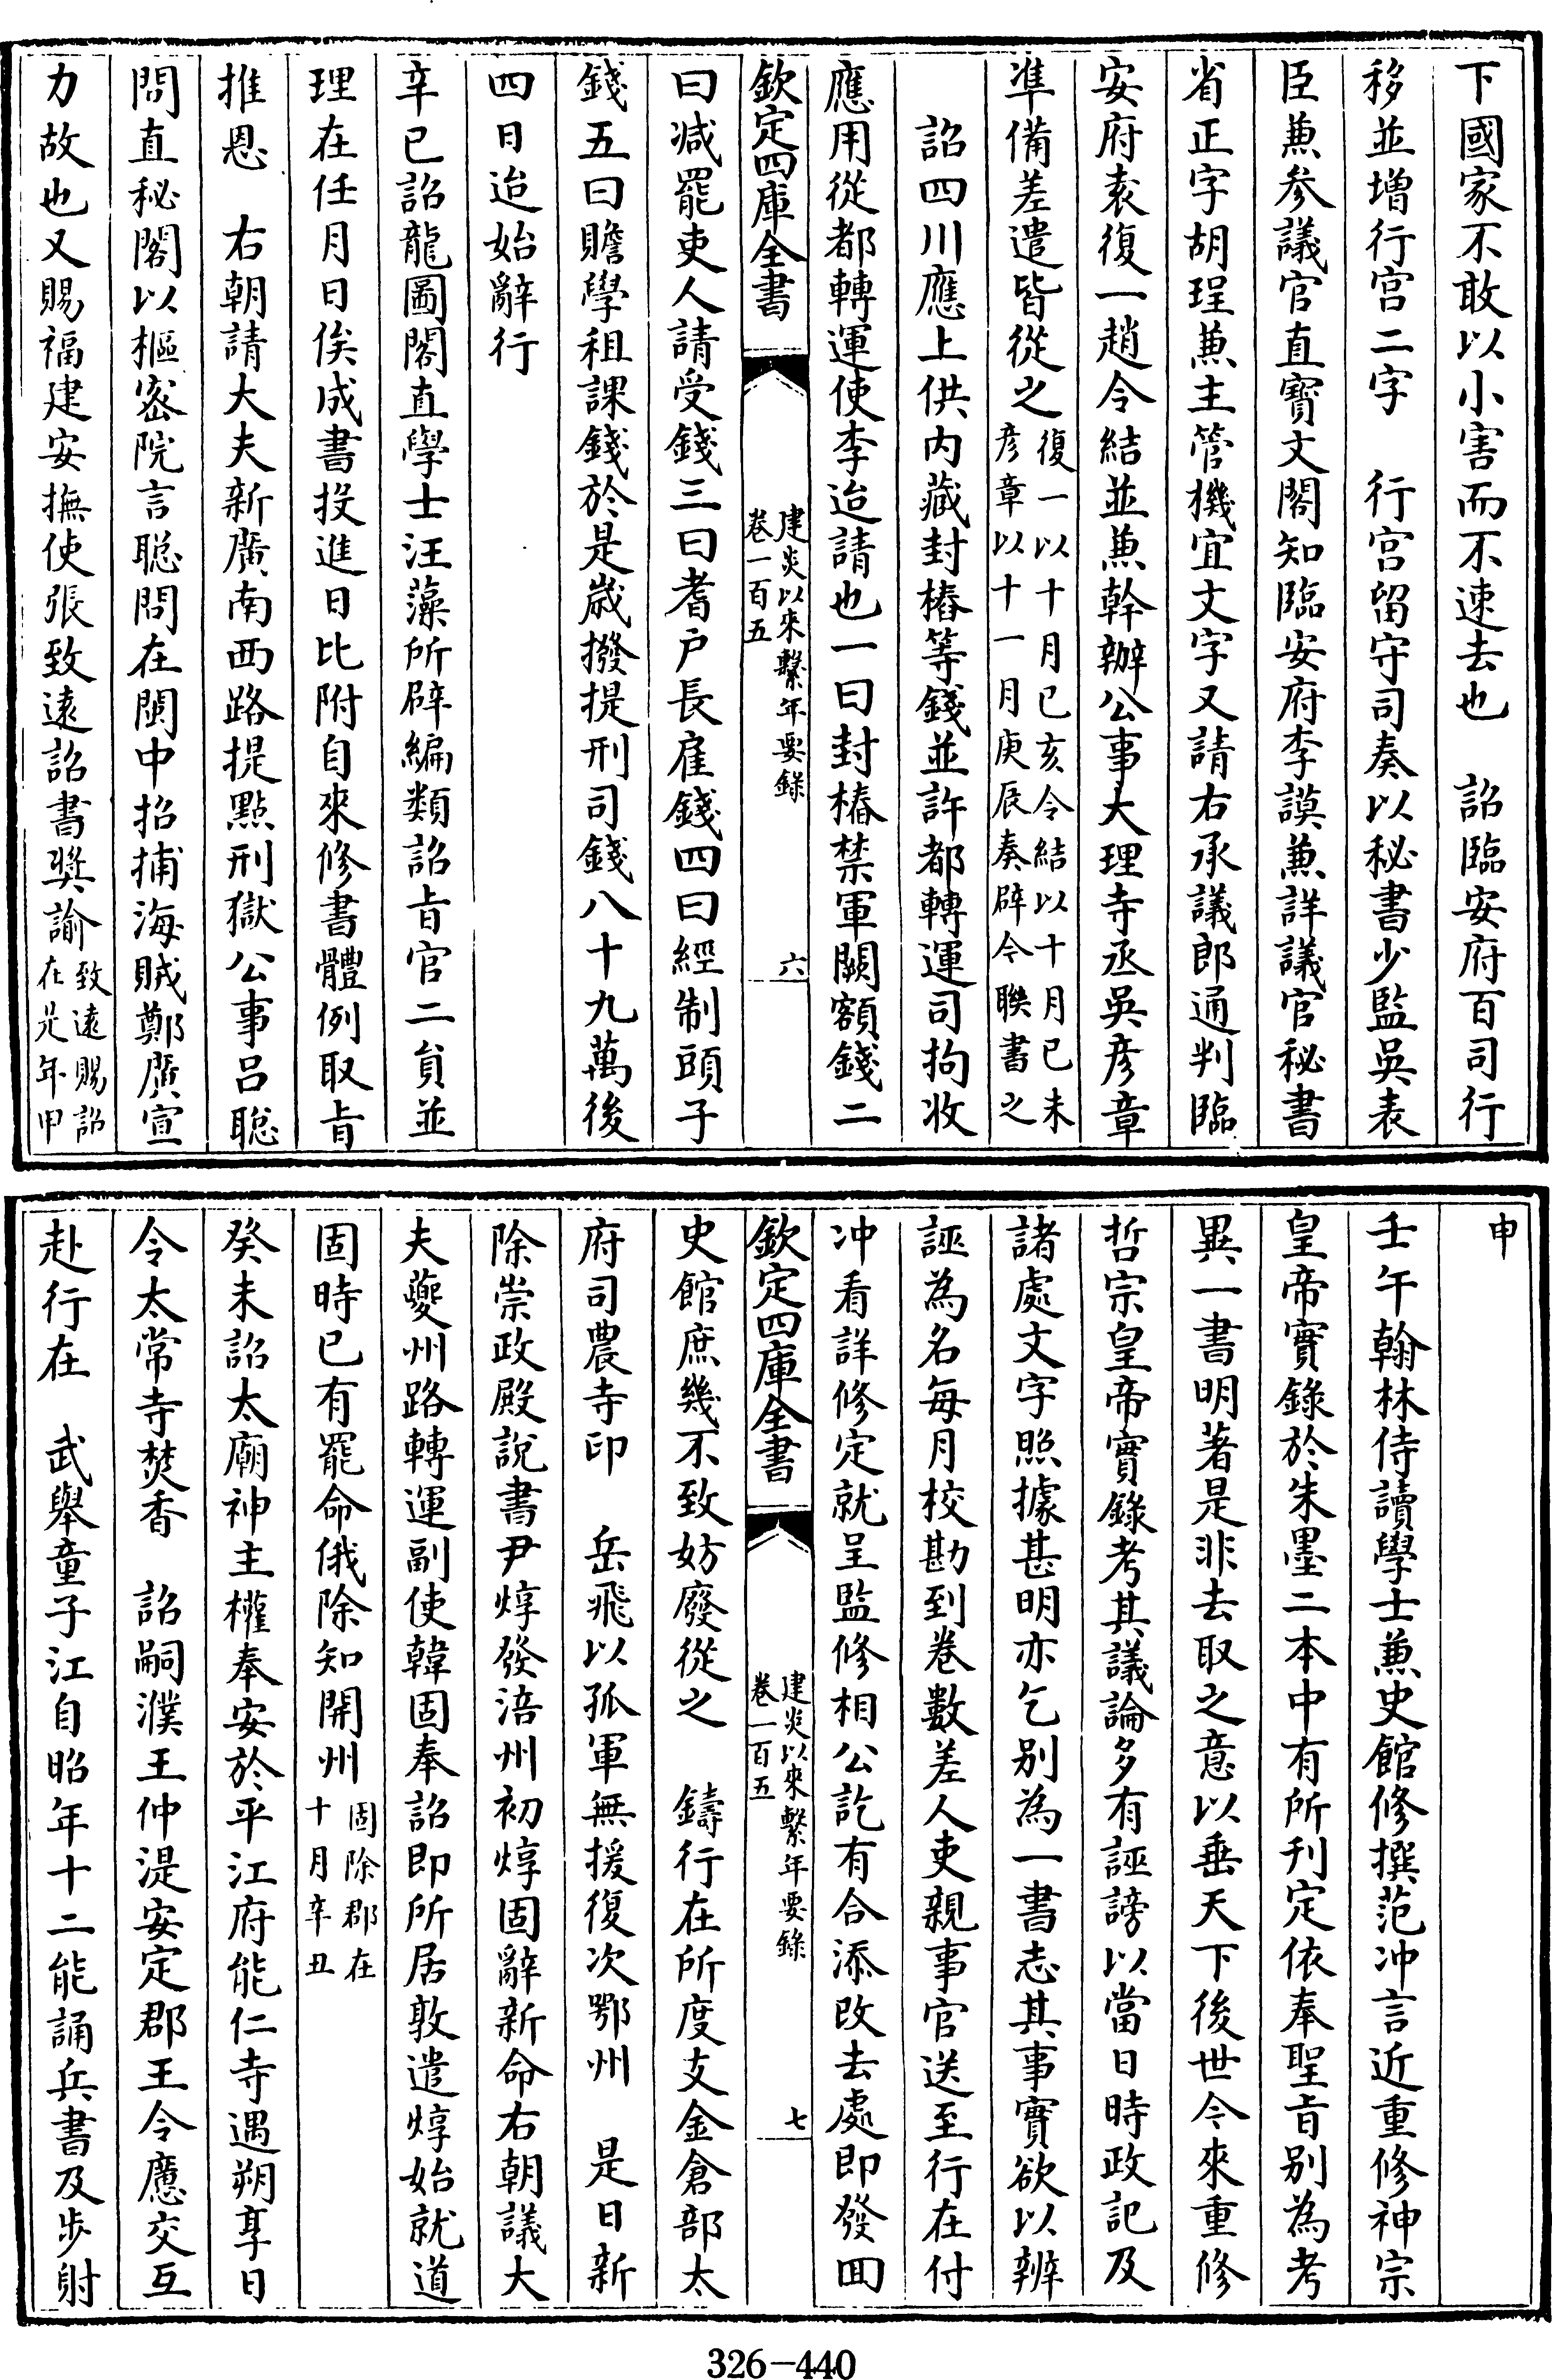 下國家不敢以小害而不速去也　詔臨安府百司行
移並增行宫二字　行宫留守司奏以秘書少監吳表
臣兼參議官直寶文閣知臨安府李謨兼詳議官秘書
省正字胡珵兼主管機宜文字又請右承議郎通判臨
安府袁復一趙令結並兼幹辦公事大理寺丞吳彦章
準備差遣皆從之復一以十月已亥令結以十月已未
彦章以十一月庚辰奏辟今聨書之
詔四川應上供内藏封樁等錢並許都轉運司拘收
應用從都轉運使李迨請也一曰封樁禁軍闕額錢二
欽定四庫全書
建炎以來繫年要録
卷一百五
六
曰减罷吏人請受錢三曰耆户長雇錢四曰經制頭子
錢五曰贍學租課錢於是歲撥提刑司錢八十九萬後
四日迨始辭行
辛已詔龍圖閣直學士汪藻所辟編類詔旨官二員並
理在任月日俟成書投進日比附自來修書體例取旨
推恩　右朝請大夫新廣南西路提點刑獄公事吕聰
問直秘閣以樞密院言聰問在閩中招捕海賊鄭廣宣
力故也又賜福建安撫使張致逺詔書奬諭致逺賜詔
在是年甲
申
壬午翰林侍讀學士兼史館修撰范冲言近重修神宗
皇帝實錄於朱墨二本中有所刋定依奉聖旨别為考
異一書明著是非去取之意以垂天下後世今來重修
哲宗皇帝實錄考其議論多有誣謗以當日時政記及
諸處文字照據甚明亦乞别為一書志其事實欲以辨
誣為名每月校勘到卷數差人吏親事官送至行在付
冲看詳修定就呈監修相公訖有合添改去處即發回
欽定四庫全書
建炎以來繫年要錄
卷一百五
七
史館庶幾不致妨廢從之　鑄行在所度支金倉部太
府司農寺印　岳飛以孤軍無援復次鄂州　是日新
除崇政殿説書尹焞發涪州初焞固辭新命右朝議大
夫夔州路轉運副使韓固奉詔即所居敦遣焞始就道
固時已有罷命俄除知開州固除郡在
十月辛丑
癸未詔太廟神主權奉安於平江府能仁寺遇朔享日
令太常寺焚香　詔嗣濮王仲湜安定郡王令應交互
赴行在　武舉童子江自昭年十二能誦兵書及步射
326-440